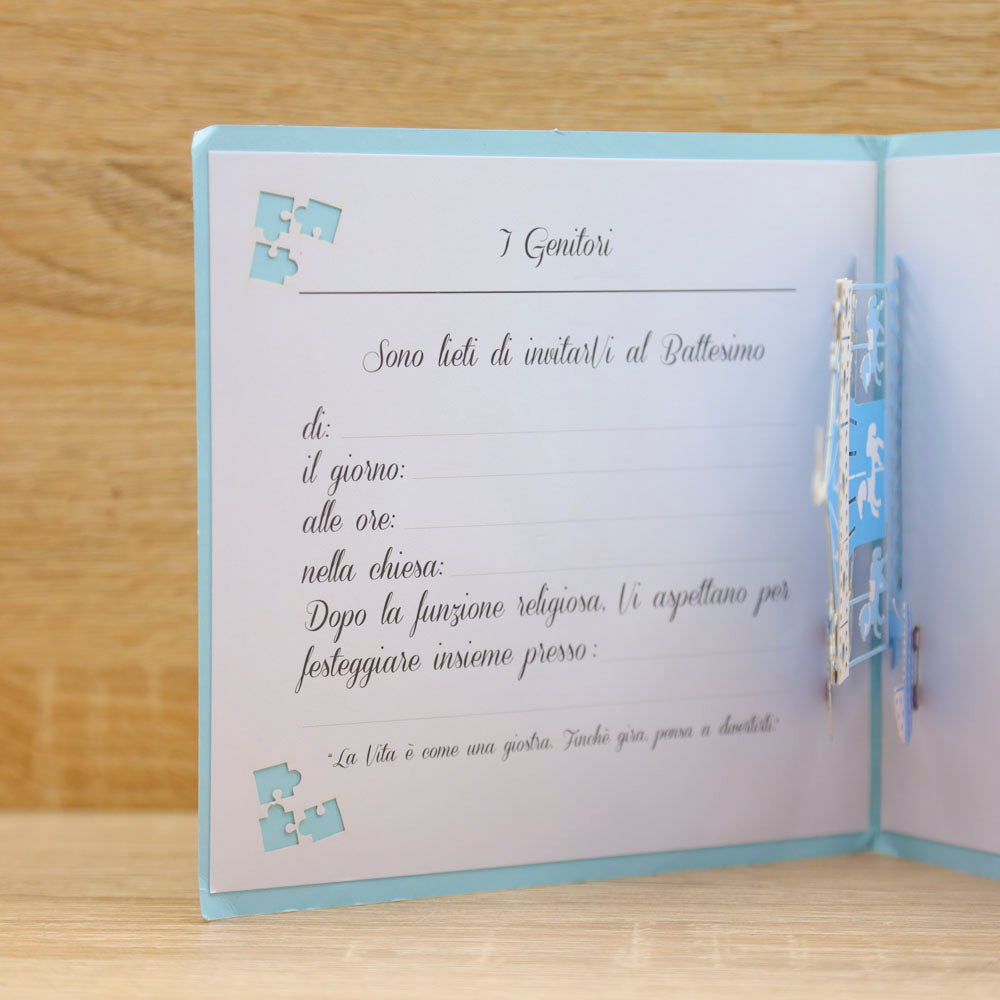 I Genitori
Sono lieti di invitarVi al Battesimo
di:
il giorno:
alle ore:
nella chiesa:
Dopo la funzione religiosa, Vi aspettano per
festeggiare insieme presso:
"La Vita è come una giostra. Finchè gira, pensa a divertirti."